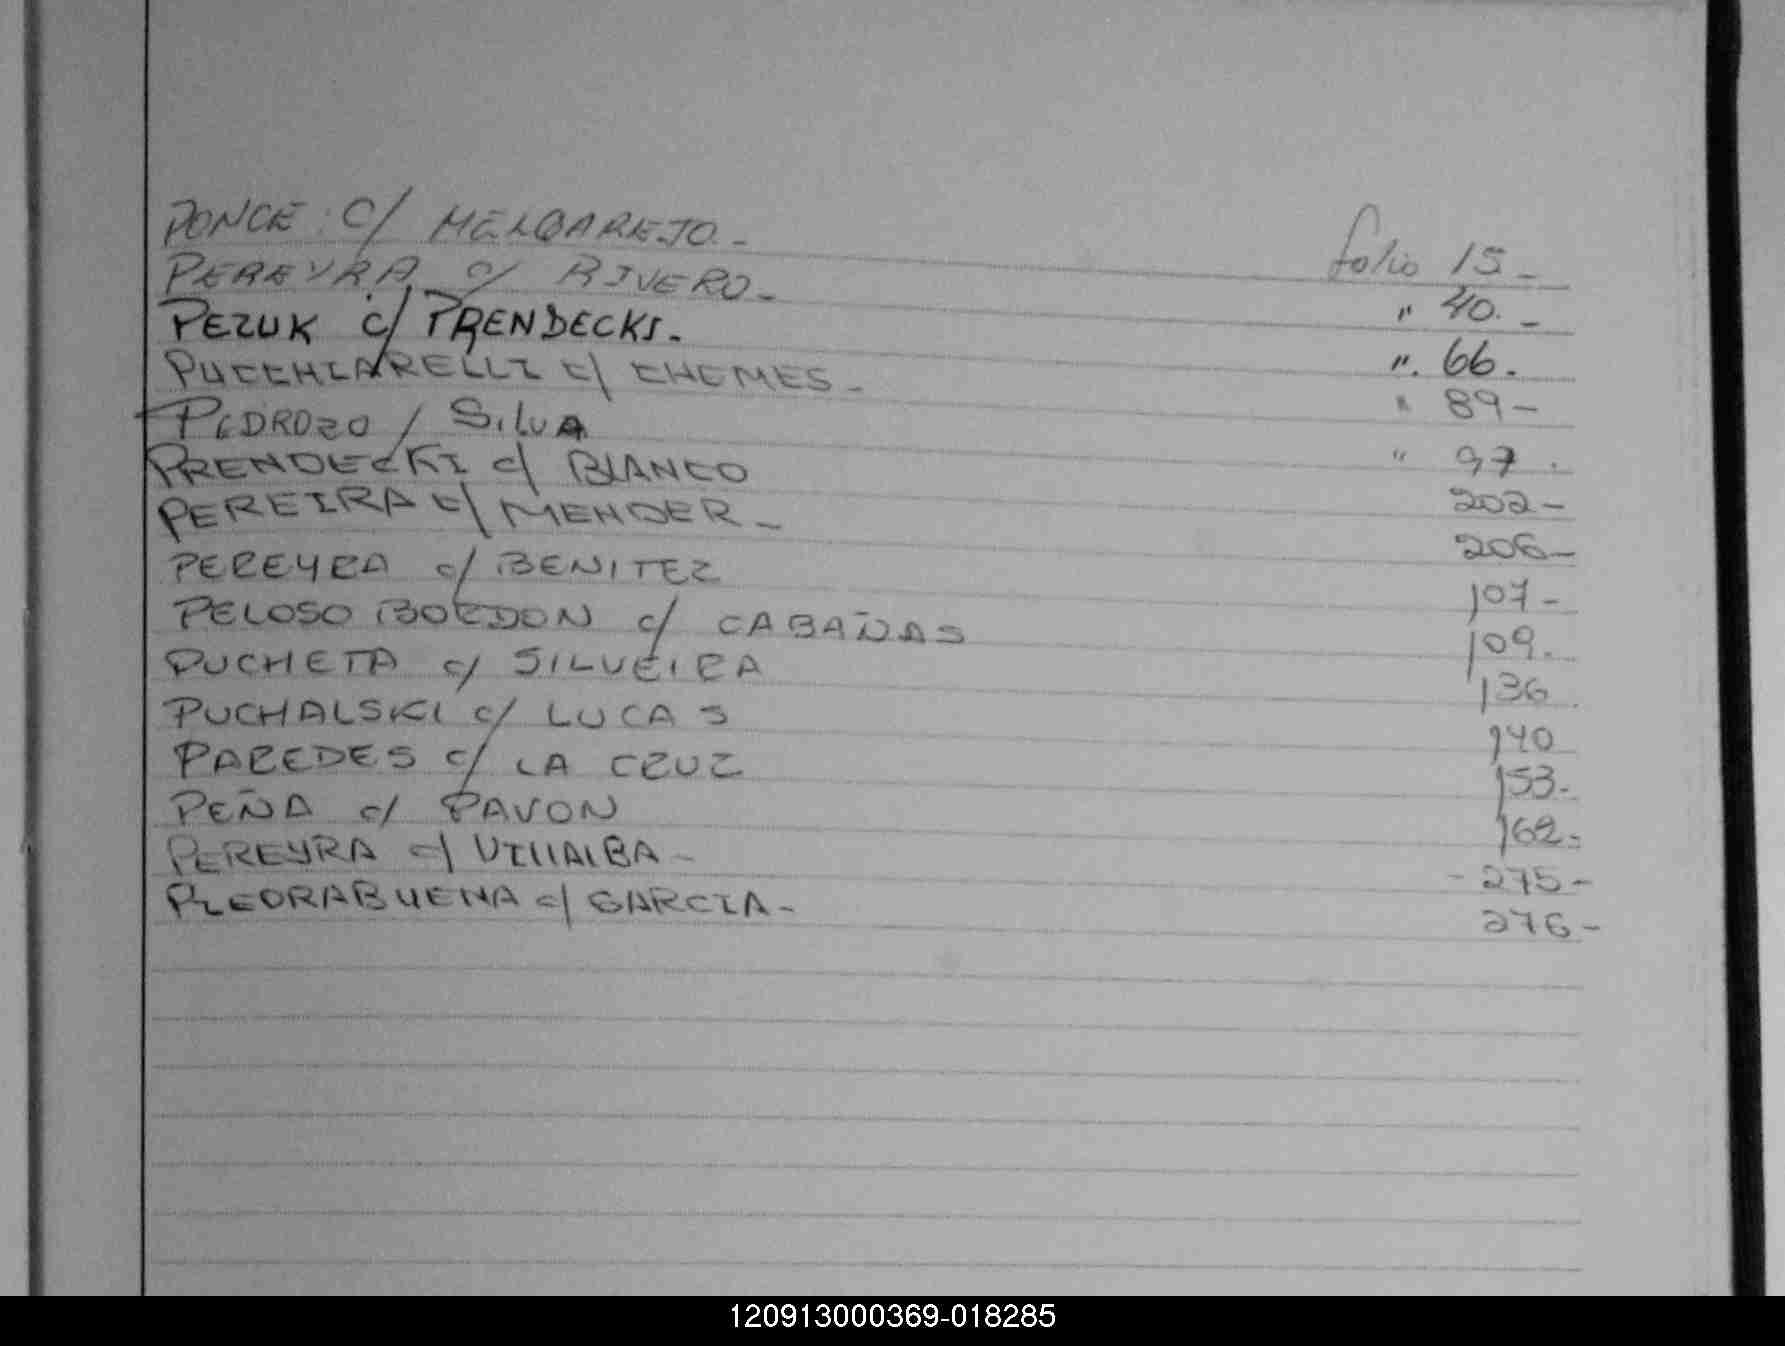 PONCE C/ MELGAREJO.- folio 15-
PEREYRA c/ RIVERO- " 40.-
PEZUK c/ PRENDECKI. ". 66.
PUCCHIARELLI c/ CHEMES- " 89-
PEDROZO / SILVA " 97.
PRENDECKI c/ BLANCO 202-
PEREIRA c/ MENDER- 206-
PEREYRA c/ BENITEZ 107-
PELOSO BORDON c/ CABAÑAS 109.
PUCHETA c/ SILVEIRA 136
PUCHALSKI c/ LUCAS 140
PAREDES c/ LA CRUZ 153-
PEÑA c/ PAVON 162-
PEREYRA c/ VILLALBA- -275-
PIEDRABUENA c/ GARCIA- 276-
120913000369-018285